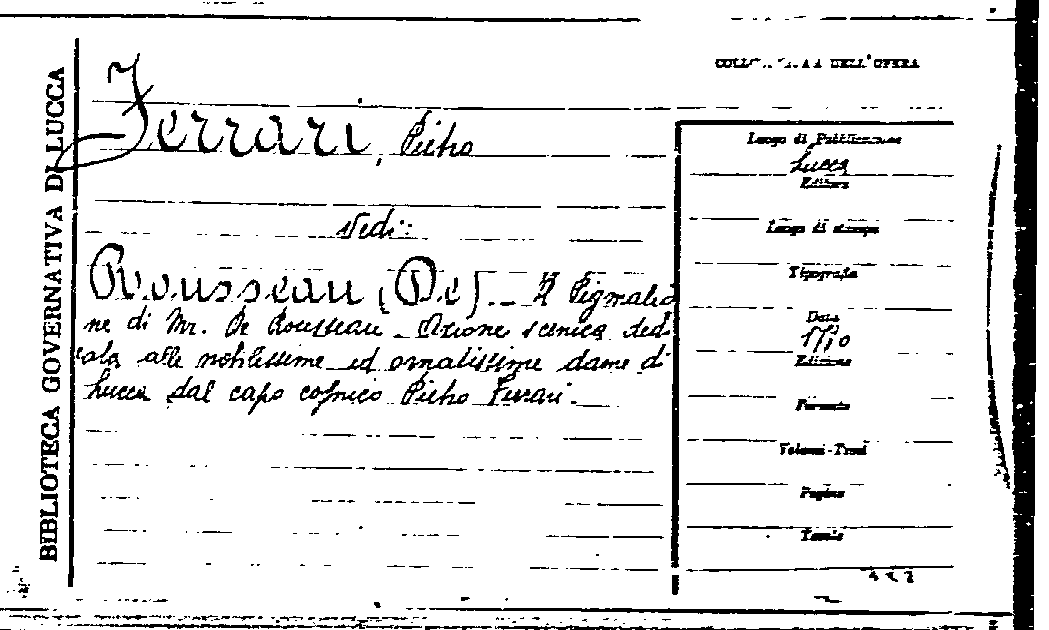 BIBLIOTECA GOVERNATIVA DI LUCCA
DELL'OPERA
Ferrari, Pietro
Vedi:
Rousseau (De) - Il Pigmalio
ne di Mr. De Rousseau - Azione scenica ded
icata alle nobilissime ed ornatissime dame di
Lucca dal capo comico Pietro Ferrari.
Luogo di Pubblicazione
Lucca
Editore
Luogo di stampa
Tipografia
Data
Edizione
Formato
Volumi-Tomi
Pagine
Tavole